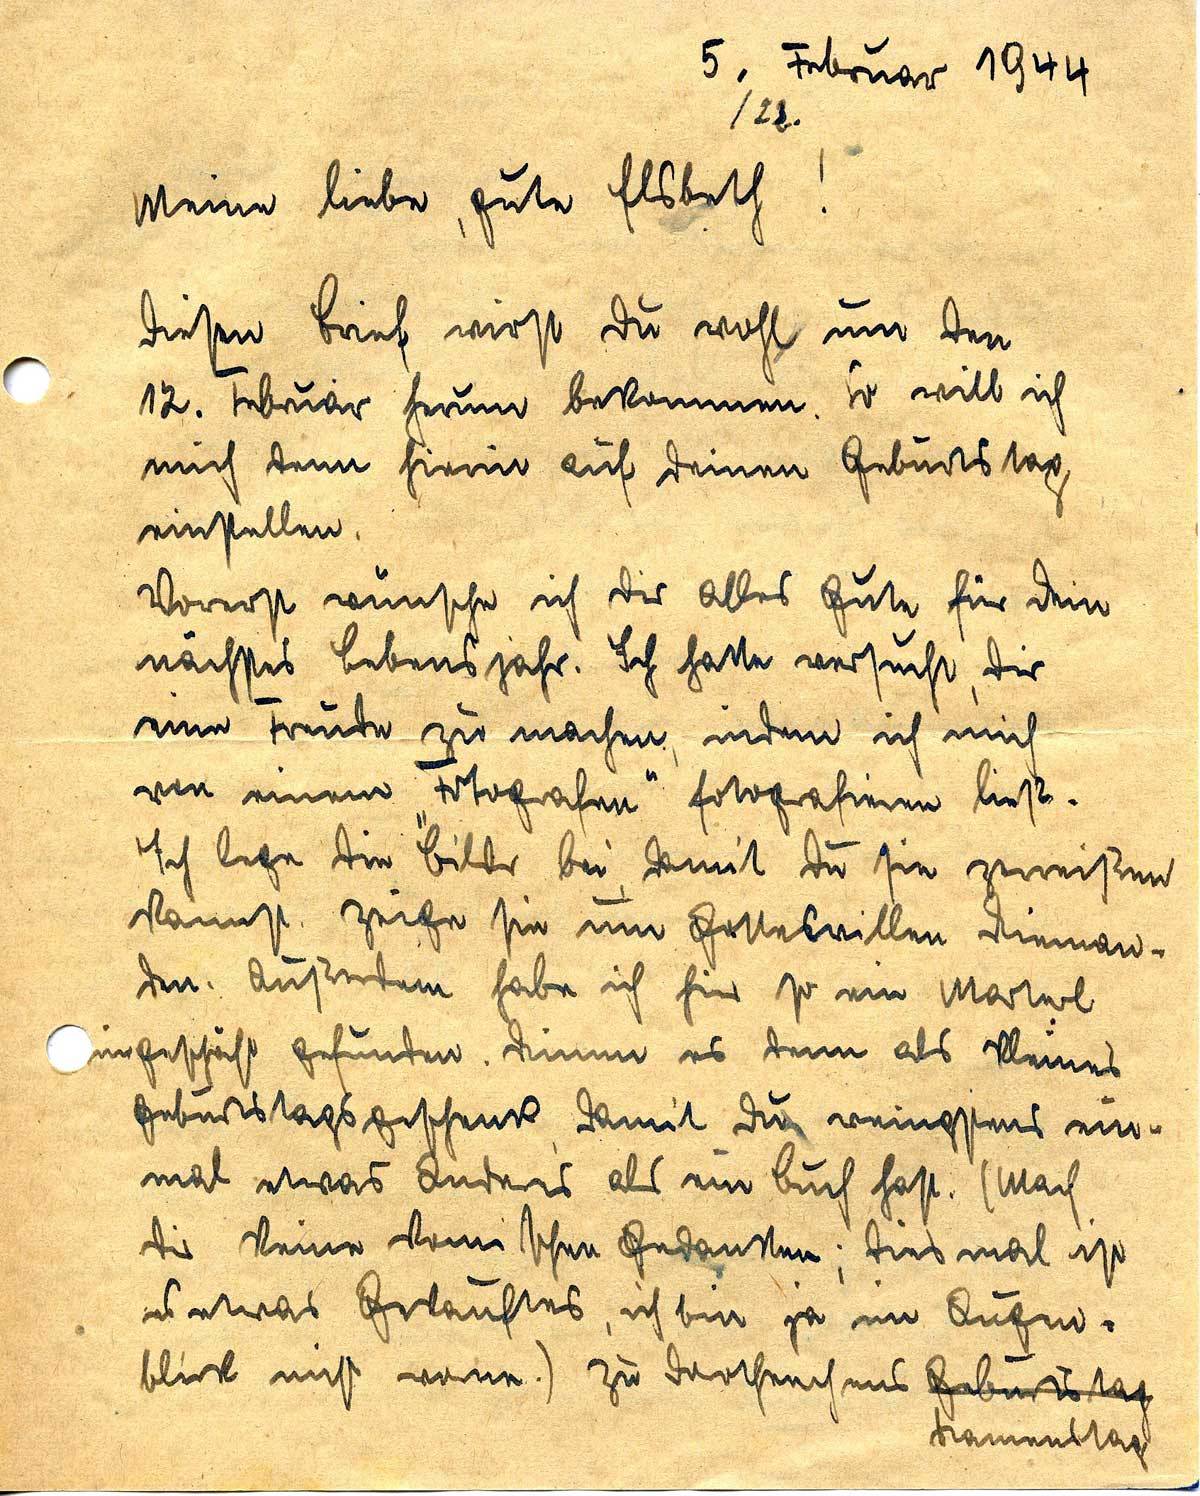 5. Februar 1944
/22.
Meine liebe, gute Elsbeth!
Diesen Brief wirst Du wohl um den
12. Februar herum bekommen. So will ich
mich denn hierin auf Deinen Geburtstag
einstellen.
Vorerst wünsche ich Dir alles Gute für Dein
nächstes Lebensjahr. Ich hatte versucht, Dir
eine Freude zu machen, indem ich mich
von einem "Fotografen" fotografieren ließ.
Ich lege die "Bilder bei, damit Du sie zerreißen
kannst. Zeige sie um Gotteswillen Nieman-
den. Außerdem habe ich hier so ein
gefunden. Nimm es denn als kleines
Geburtstagsgeschenk, damit Du wenigstens ein-
mal etwas Anderes als ein Buch hast. (Mach
Dir keine komischen Gedanken; diesmal ist
es etwas Gekauftes, ich bin ja im Augen-
blick nicht vorne.) Zu Dortheechens Geburtstag
Namenstag